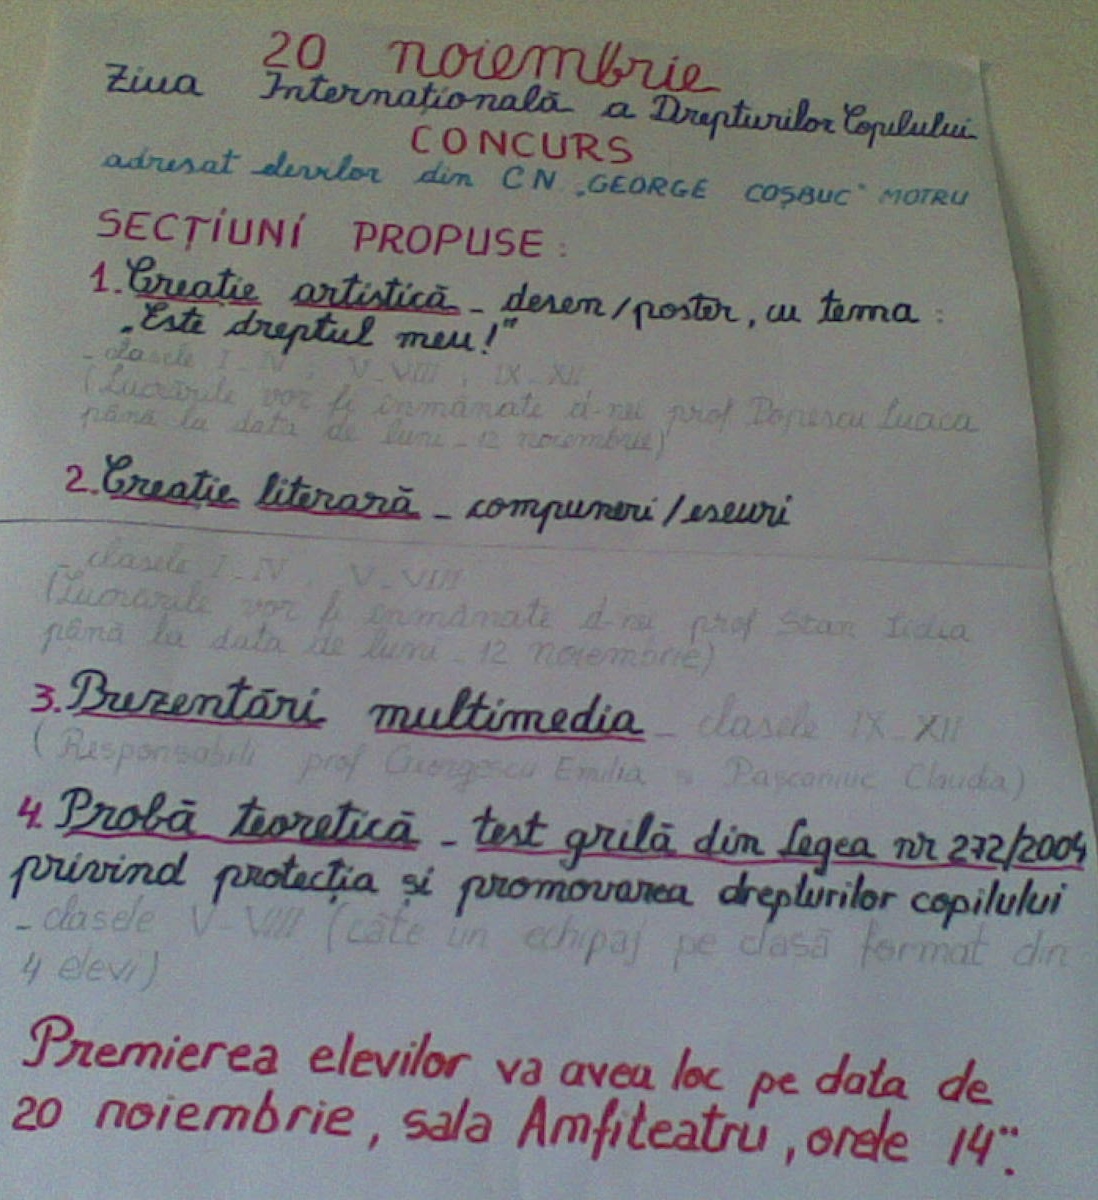 20 noiembrie
Ziua Internațională a Drepturilor Copilului
CONCURS
adresat elevilor din CN „GEORGE COȘBUC" MOTRU
SECȚIUNI PROPUSE:
1. Creație artistică - desen/poster, cu tema:
„Este dreptul meu!"
- clasele I-IV, V-VIII, IX-XII
(Lucrările vor fi înmânate d-nei prof Popescu
până la data de luni - 12 noiembrie)
2. Creație literară - compuneri/eseuri
- clasele I-IV, V-VIII
(Lucrările vor fi înmânate d-nei prof Stan Lidia
până la data de luni - 12 noiembrie)
3. Prezentări multimedia - clasele IX-XII
(Responsabili prof Georgescu Emilia și Pașcaniuc Claudia)
4. Probă teoretică - test grilă din Legea nr 272/2004
privind protecția și promovarea drepturilor copilului
- clasele V-VIII (câte un echipaj pe clasă format din
4 elevi)
Premierea elevilor va avea loc pe data de
20 noiembrie, sala Amfiteatru, orele 14°°.